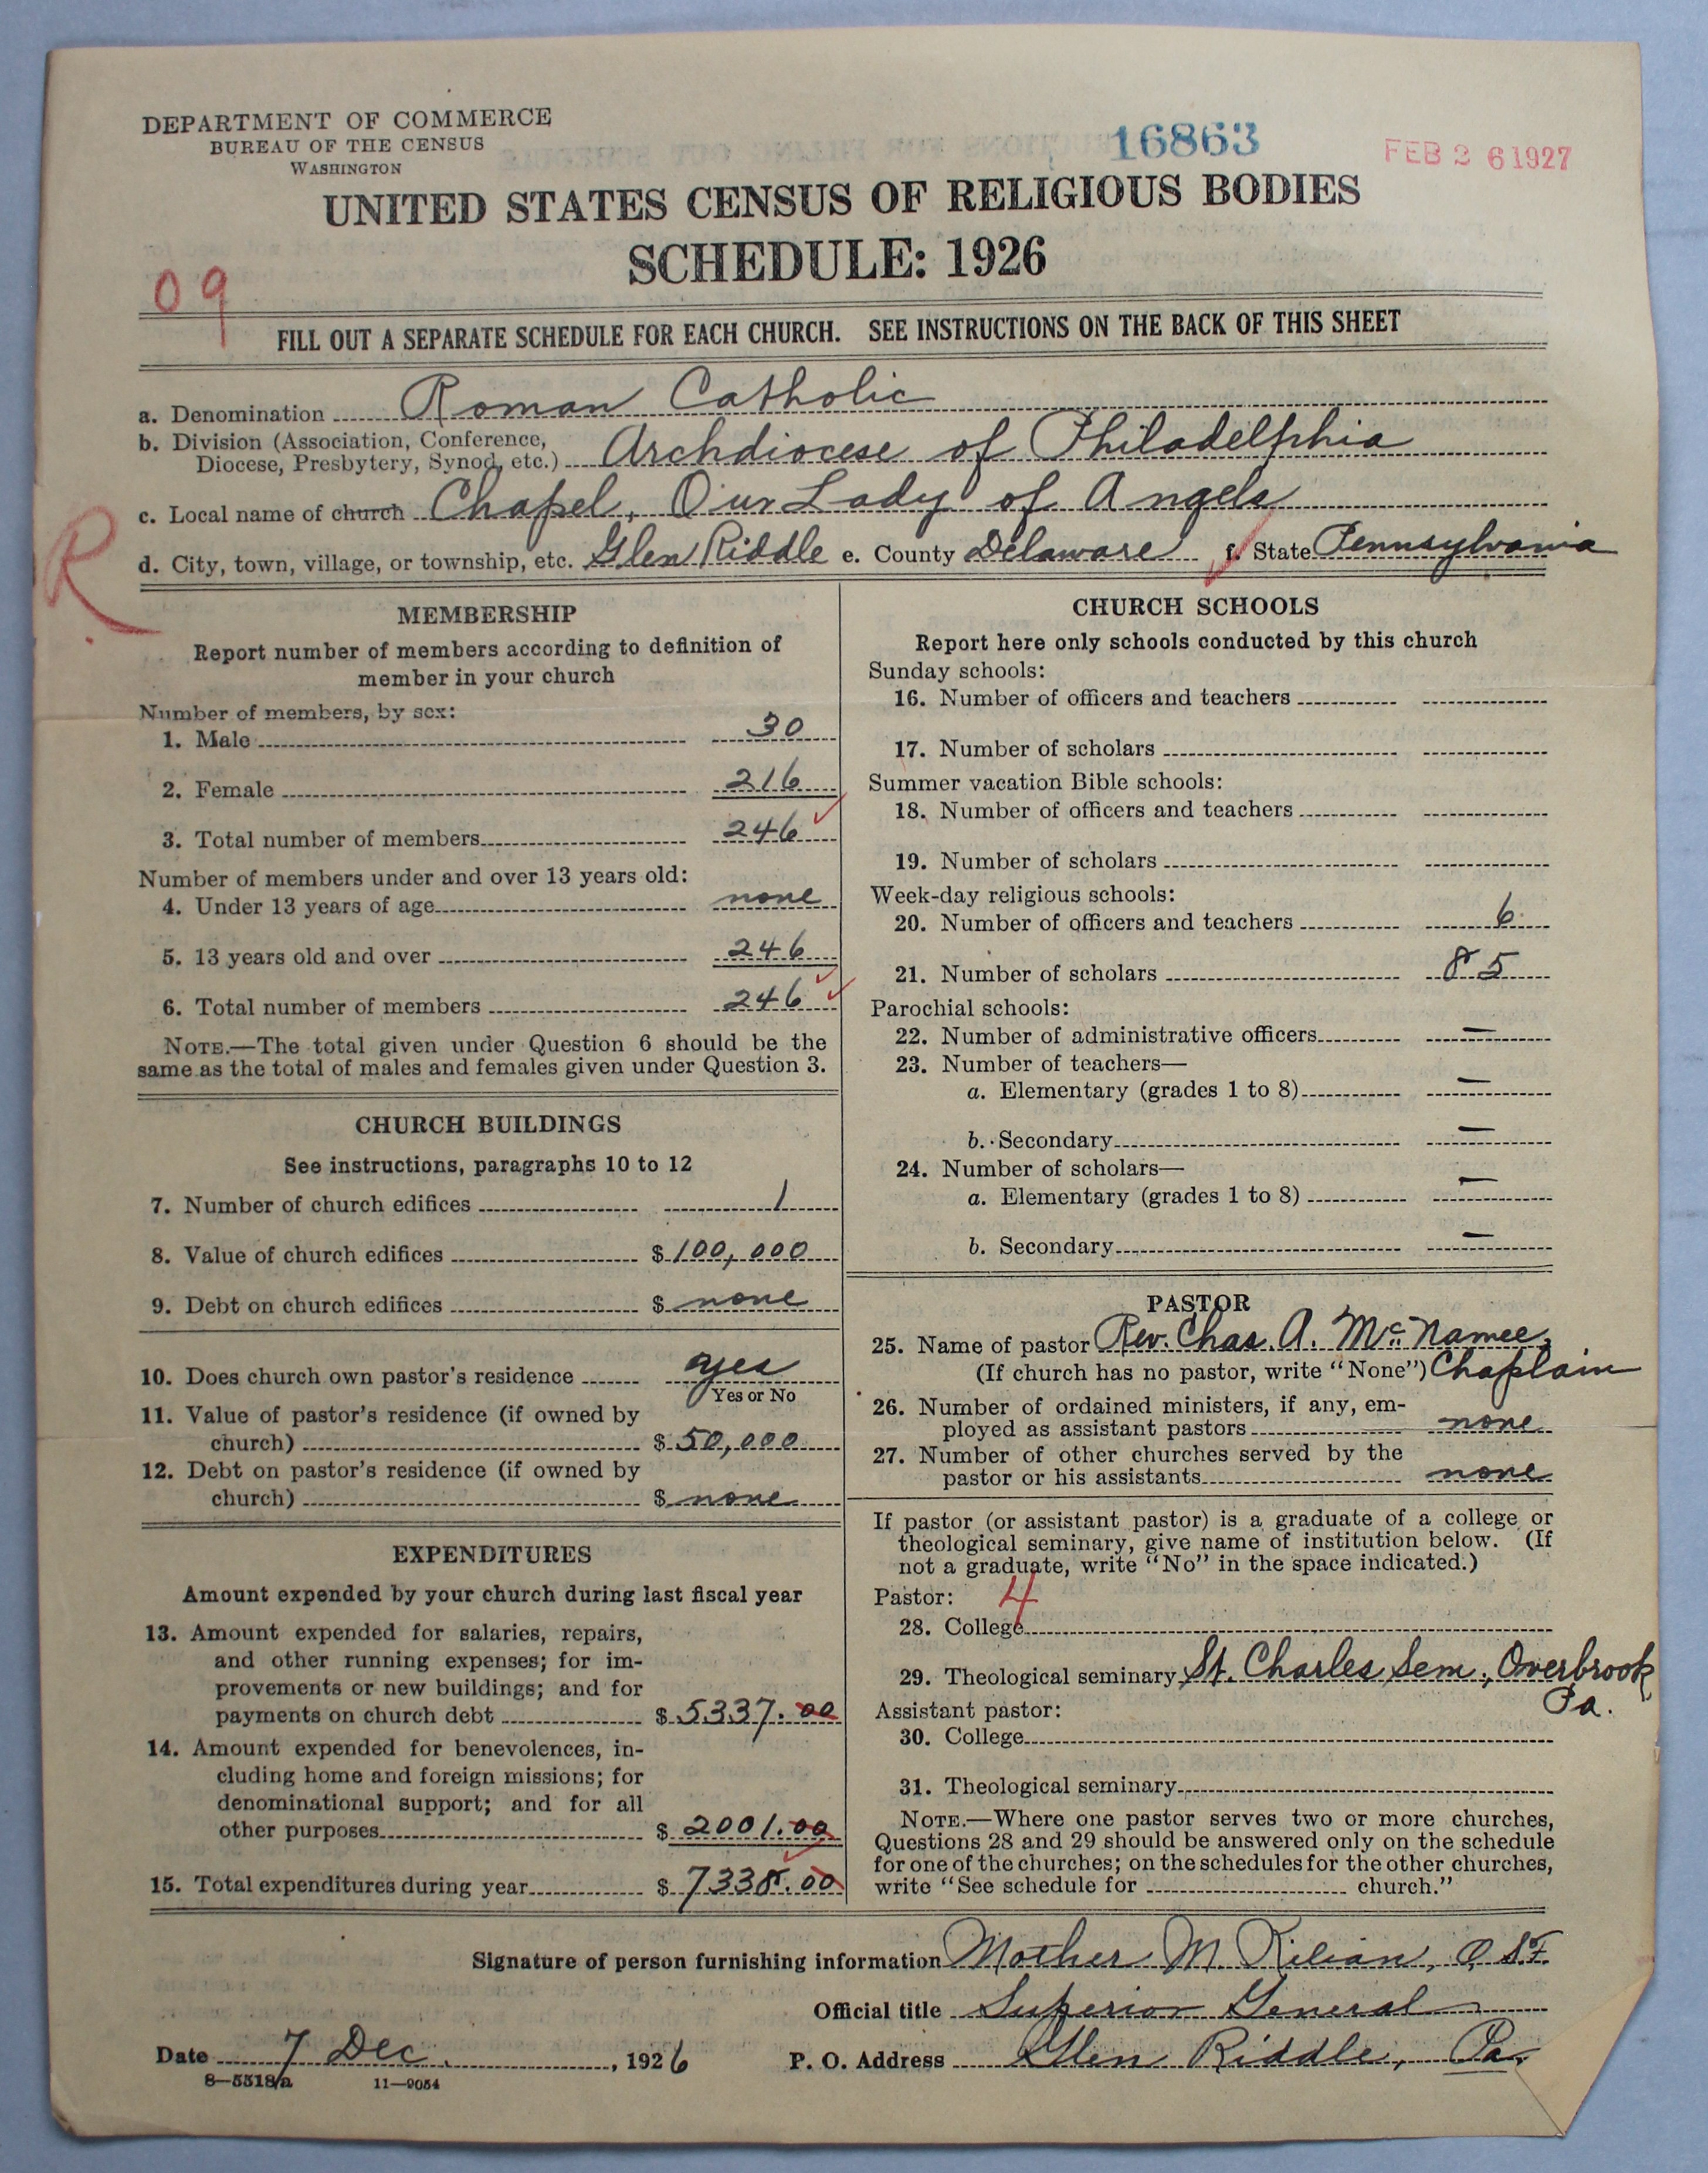 DEPARTMENT OF COMMERCE
BUREAU OF THE CENSUS
WASHINGTON
16863
FEB 26 1927
UNITED STATES CENSUS OF RELIGIOUS BODIES
SCHEDULE: 1926
09
FILL OUT A SEPARATE SCHEDULE FOR EACH CHURCH. SEE INSTRUCTIONS ON THE BACK OF THIS SHEET
a. Denomination Roman Catholic
b. Division (Association, Conference,
Diocese, Presbytery, Synod, etc.) Archdiocese of Philadelphia
c. Local name of church Chapel, Our Lady of Angels
R
d. City, town, village, or township, etc. Glen Riddle e. County Delaware f. State Pennsylvania
MEMBERSHIP
Report number of members according to definition of
member in your church
Number of members, by sex:
1. Male 30
2. Female 216
3. Total number of members 246
Number of members under and over 13 years old:
4. Under 13 years of age none
5. 13 years old and over 246
6. Total number of members 246
NOTE.—The total given under Question 6 should be the
same as the total of males and females given under Question 3.
CHURCH BUILDINGS
See instructions, paragraphs 10 to 12
7. Number of church edifices 1
8. Value of church edifices $ 100,000
9. Debt on church edifices $ none
10. Does church own pastor's residence yes
Yes or No
11. Value of pastor's residence (if owned by
church) $ 50,000
12. Debt on pastor's residence (if owned by
church) $ none
EXPENDITURES
Amount expended by your church during last fiscal year
13. Amount expended for salaries, repairs,
and other running expenses; for im-
provements or new buildings; and for
payments on church debt $ 5337.00
14. Amount expended for benevolences, in-
cluding home and foreign missions; for
denominational support; and for all
other purposes $ 2001.00
15. Total expenditures during year $ 7338.00
CHURCH SCHOOLS
Report here only schools conducted by this church
Sunday schools:
16. Number of officers and teachers
17. Number of scholars
Summer vacation Bible schools:
18. Number of officers and teachers
19. Number of scholars
Week-day religious schools:
20. Number of officers and teachers 6
21. Number of scholars 85
Parochial schools:
22. Number of administrative officers —
23. Number of teachers—
a. Elementary (grades 1 to 8) —
b. Secondary —
24. Number of scholars—
a. Elementary (grades 1 to 8) —
b. Secondary —
PASTOR
25. Name of pastor Rev. Chas. A. McNamee,
(If church has no pastor, write "None") Chaplain
26. Number of ordained ministers, if any, em-
ployed as assistant pastors none
27. Number of other churches served by the
pastor or his assistants none
If pastor (or assistant pastor) is a graduate of a college or
theological seminary, give name of institution below. (If
not a graduate, write "No" in the space indicated.)
Pastor: 4
28. College
29. Theological seminary St. Charles Sem., Overbrook
Pa.
Assistant pastor:
30. College
31. Theological seminary
NOTE.—Where one pastor serves two or more churches,
Questions 28 and 29 should be answered only on the schedule
for one of the churches; on the schedules for the other churches,
write "See schedule for church."
Signature of person furnishing information Mother M. Kilian, O.S.F.
Official title Superior General
Date 7 Dec., 1926 P. O. Address Glen Riddle, Pa.
8—5518a 11—9054